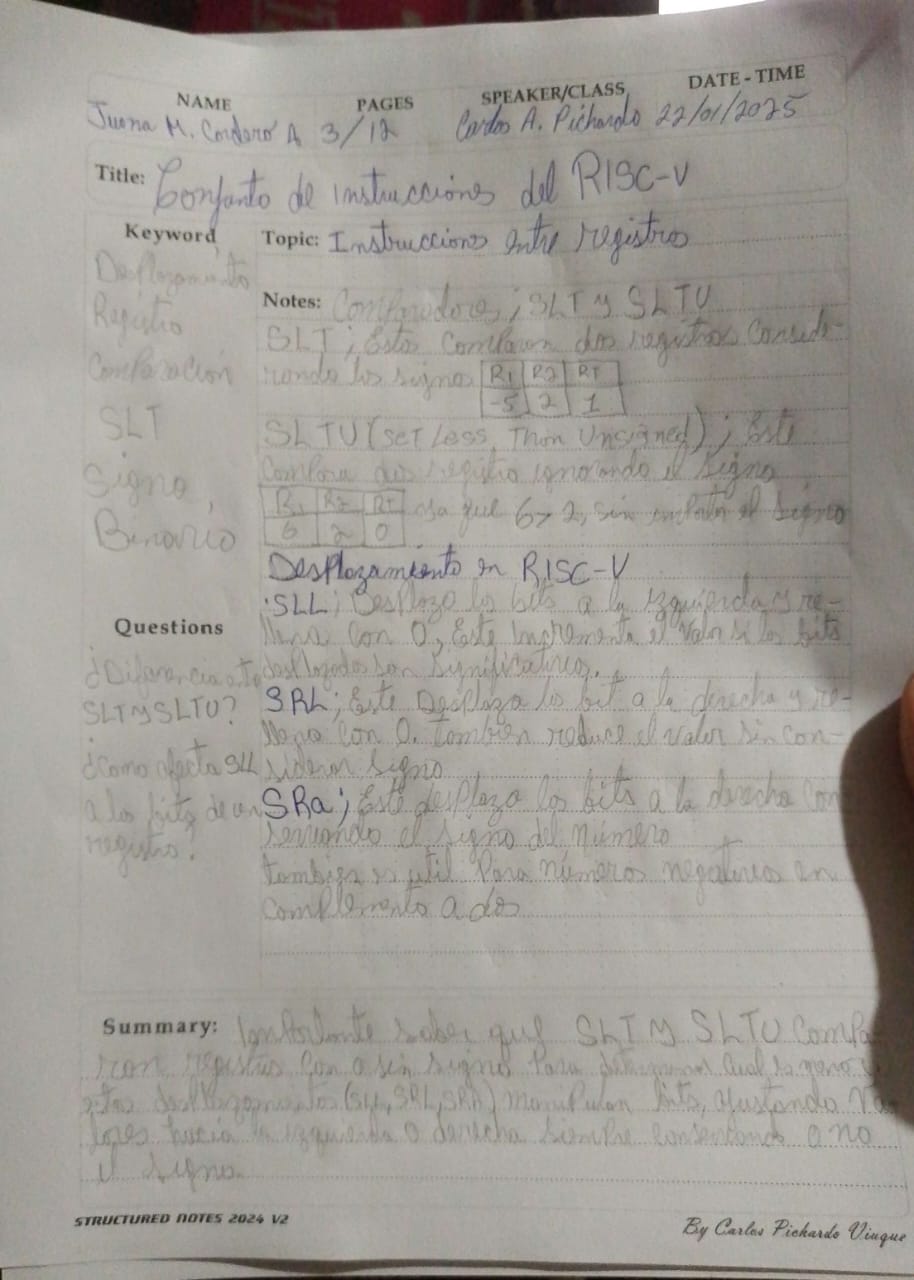 NAME PAGES SPEAKER/CLASS DATE - TIME
Juana M. Cordero A 3/12 Carlos A. Pichardo 22/01/2025
Title: Conjunto de instrucciones del RISC-V
Keyword
Desplazamiento
Registro
Comparación
SLT
Signo
Binario
Topic: Instrucciones entre registros
Notes: Comparadores; SLT y SLTU
SLT; Estos Comparan dos registros Conside-
rando los signos
R1 R2 RT
-5 2 1
SLTU (set Less Than Unsigned); Este
Compara dos registro ignorando el signo
R1 R2 RT
6 2 0
ya que 6>2, sin importar el signo
Desplazamiento en RISC-V
·SLL; Desplaza los bits a la izquierda y re-
llena con 0, Este incrementa el valor si los bits
desplazados son significativos.
SRL; Este Desplaza los bit a la derecha y re-
llena con 0. Tombien reduce el valor sin con-
siderar signo
SRa; Este desplaza los bits a la derecha con
servando el signo del número
tambien es util Para números negativos en
complemento a dos
Questions
¿Diferencia
SLT y SLTU?
¿como afecta SLL
a los bits de un
registro?
Summary: Importante saber que SLT y SLTU Compa
ran registros con o sin signo Para determinar cual es menor
estos desplazamientos (SLL, SRL, SRA) manipulan bits, ajustando Va
lores hacia la izquierda o derecha siempre conservando o no
el signo.
STRUCTURED NOTES 2024 V2
By Carlos Pichardo Viuque